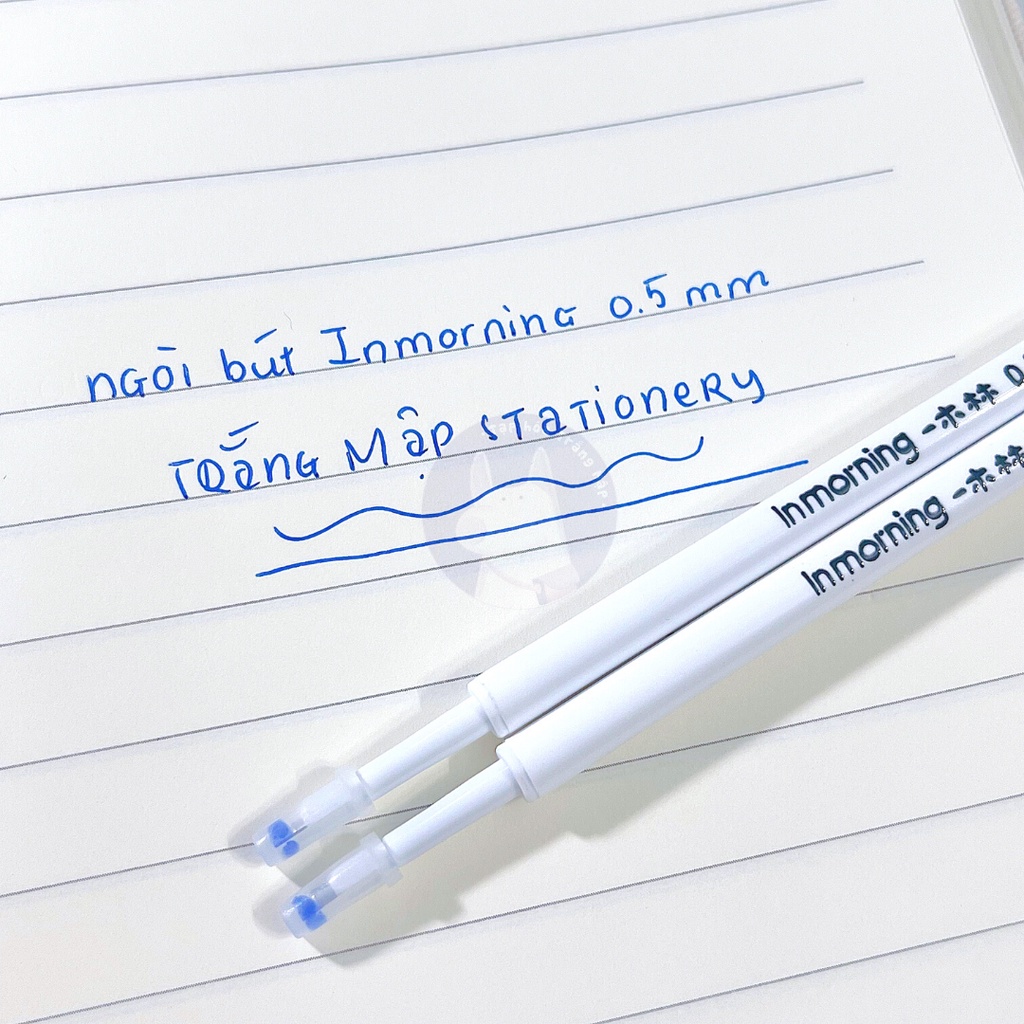 nGòi bút Inmorning 0.5 mm
Trắng Mập Stationery
Inmorning 一木林 0.
Inmorning 一木林